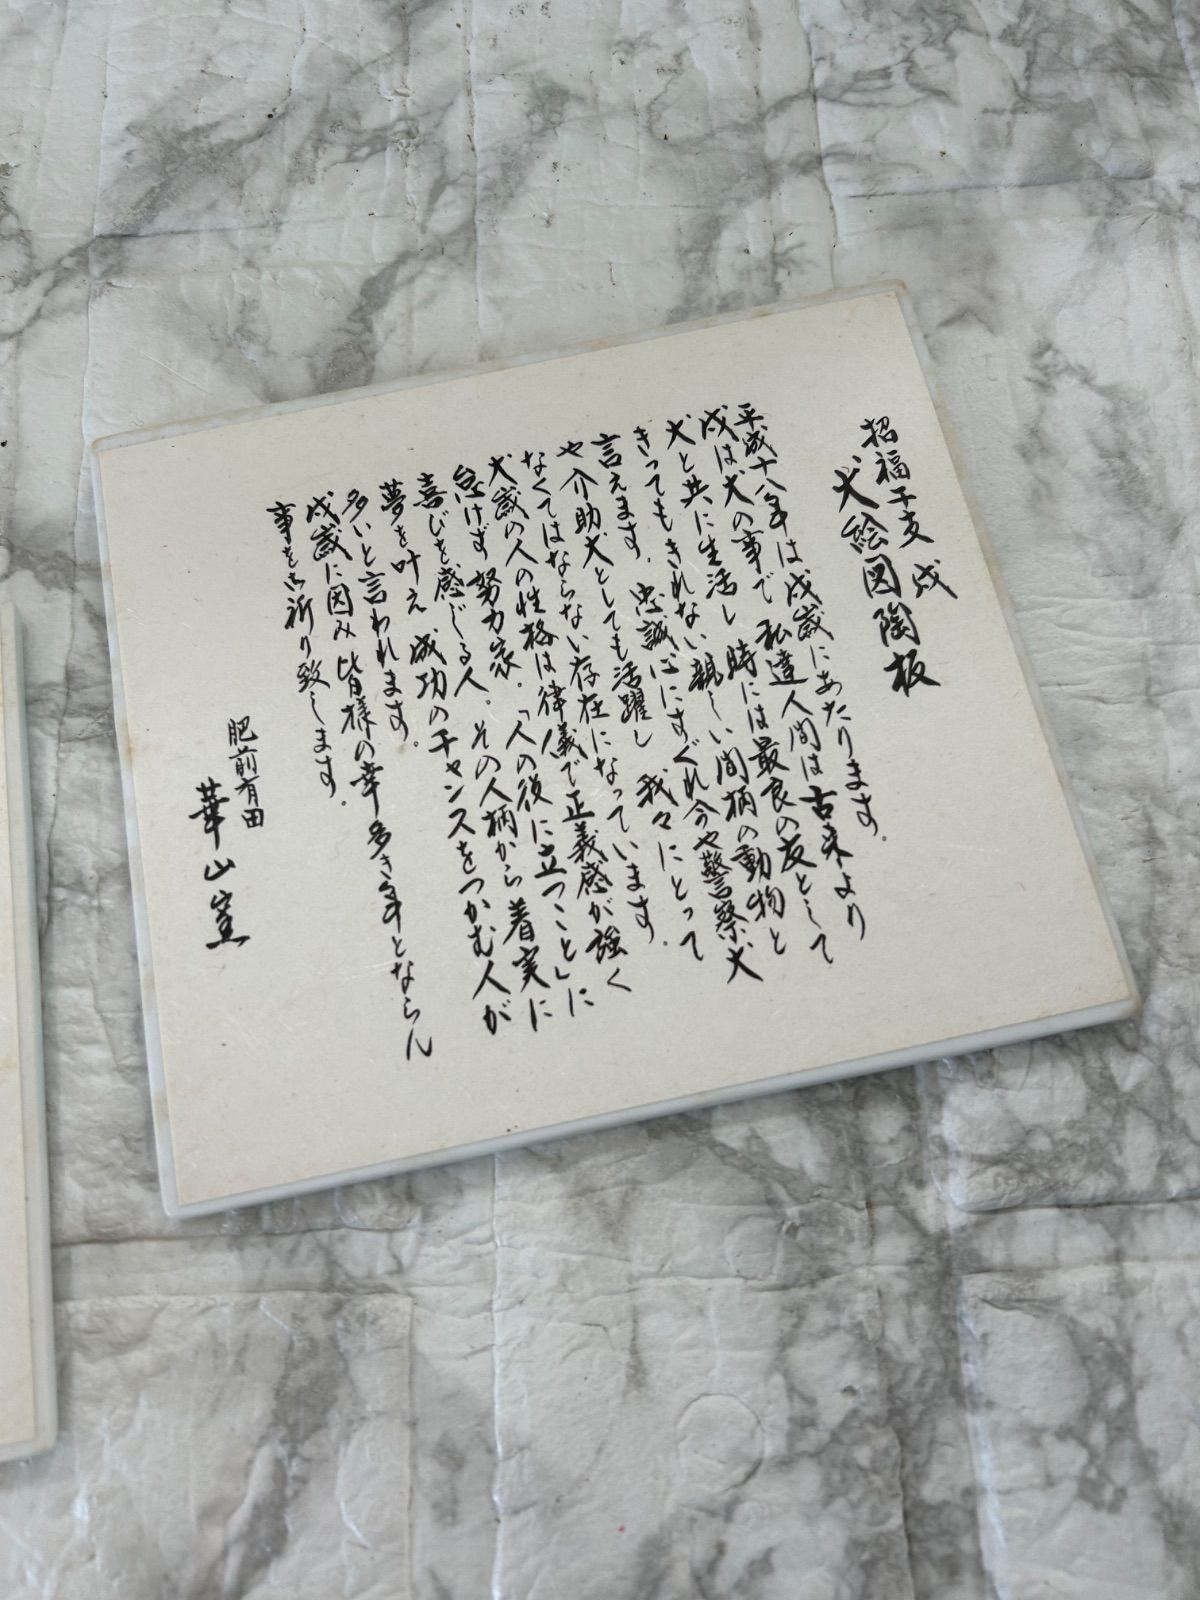 招福干支 戌
犬絵図陶板
平成十八年は戌歳にあたります。
戌は犬の事で 私達人間は古来より
犬と共に生活し 時には最良の友として
きってもきれない親しい間柄の動物と
言えます。忠誠心にすぐれ今や警察犬
や介助犬としても活躍し 我々にとって
なくてはならない存在になっています。
犬歳の人の性格は律儀で正義感が強く
怠けず努力家。「人の後に立つこと」に
喜びを感じる人。その人柄から着実に
夢を叶え 成功のチャンスをつかむ人が
多いと言われます。
戌歳に因み 皆様の幸多き年とならん
事をお祈り致します。
肥前有田
華山窯